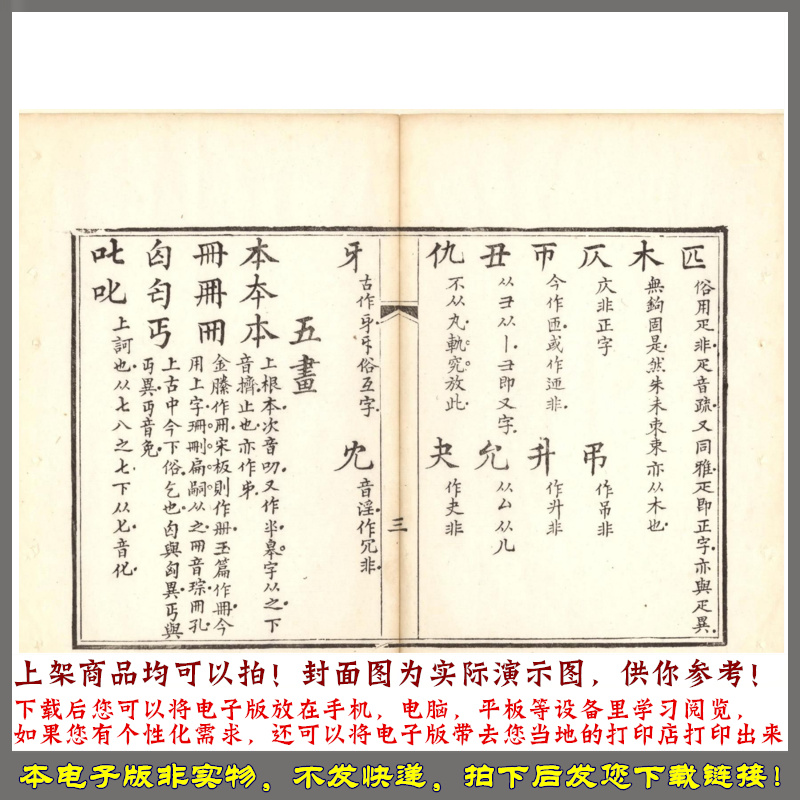 匹 俗用疋非疋音疏又同雅疋即正字亦與疋異
木 無鉤固是然朱未朿束亦从木也
仄 庂非正字
弔 作吊非
帀 今作匝或作迊非
升 作升非
丑 从彐从丨彐即又字
允 从厶从儿
仇 不从丸軌究放此
夬 作夬非
三
牙 古作㸦俗互字
冘 音淫作冗非
五畫
本夲本 上根本次音叨又作𠦍皋字从之下
音擠止也亦作𠂔
冊冊 金縢作用宋板則作册玉篇作冊今
用上字珊刪扁嗣从之音琮冊孔
匄丐 上古中今下俗乞也匄與匈異丐與
丏異丏音免
叱𠮟 上訶也从七八之七下从匕音化
上架商品均可以拍！封面图为实际演示图，供你参考！
下载后您可以将电子版放在手机，电脑，平板等设备里学习阅览，
如果您有个性化需求，还可以将电子版带去您当地的打印店打印出来
本电子版非实物，不发快递，拍下后发您下载链接！